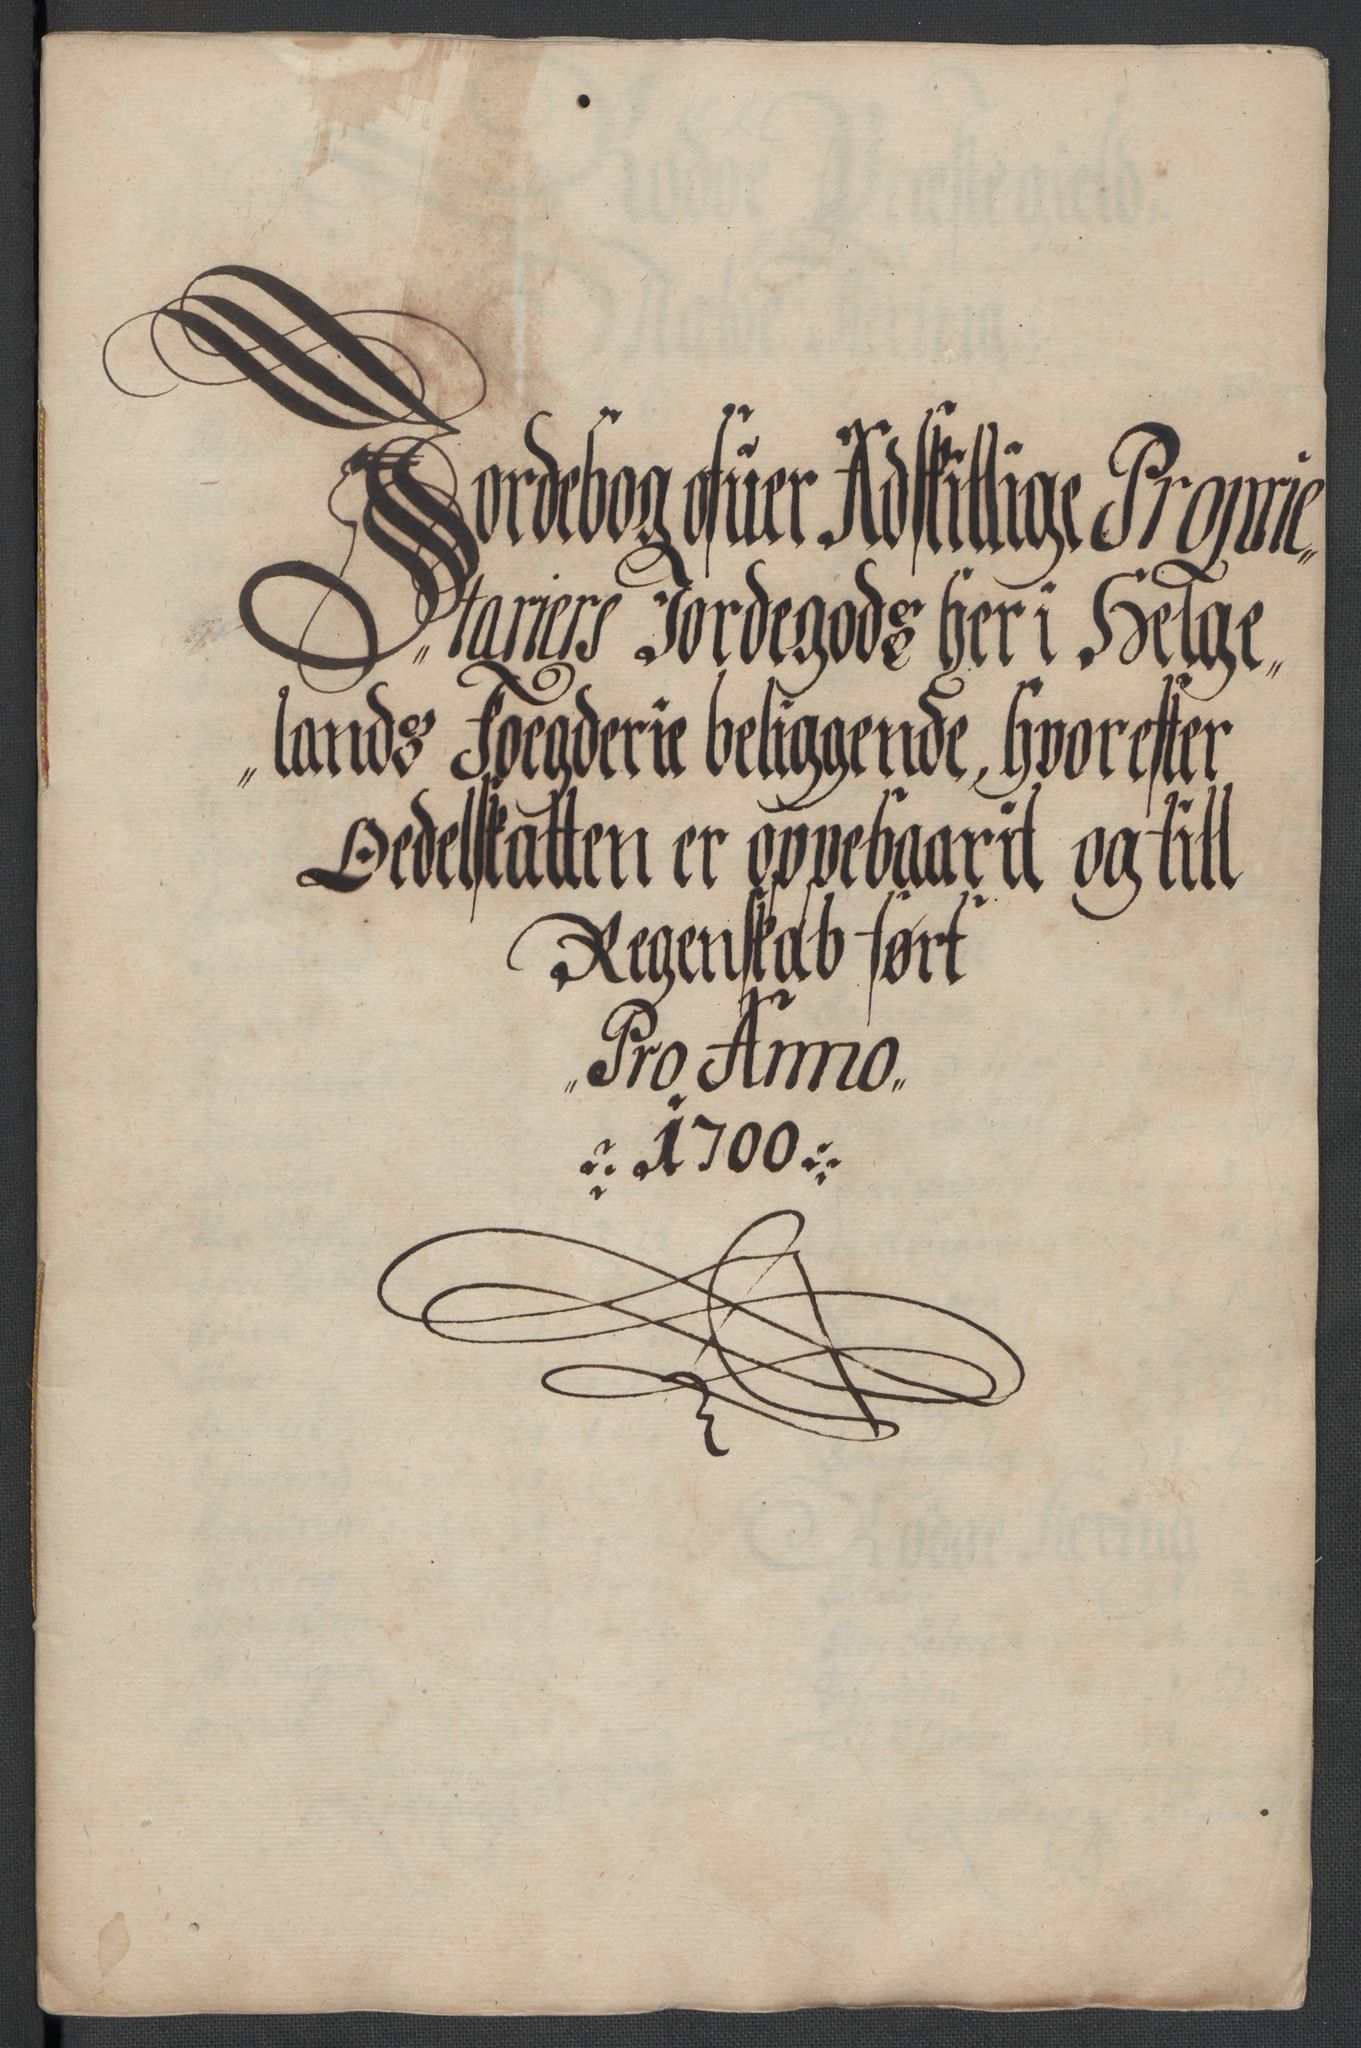 Jordebog ofuer Adskillige Proprie„
„tariers Jordegods her i Helge„
„lands Foegderie beliggende, hvorefter
Oedelskatten er oppebaarit og till
Regenskab ført
„Pro Anno„
1700